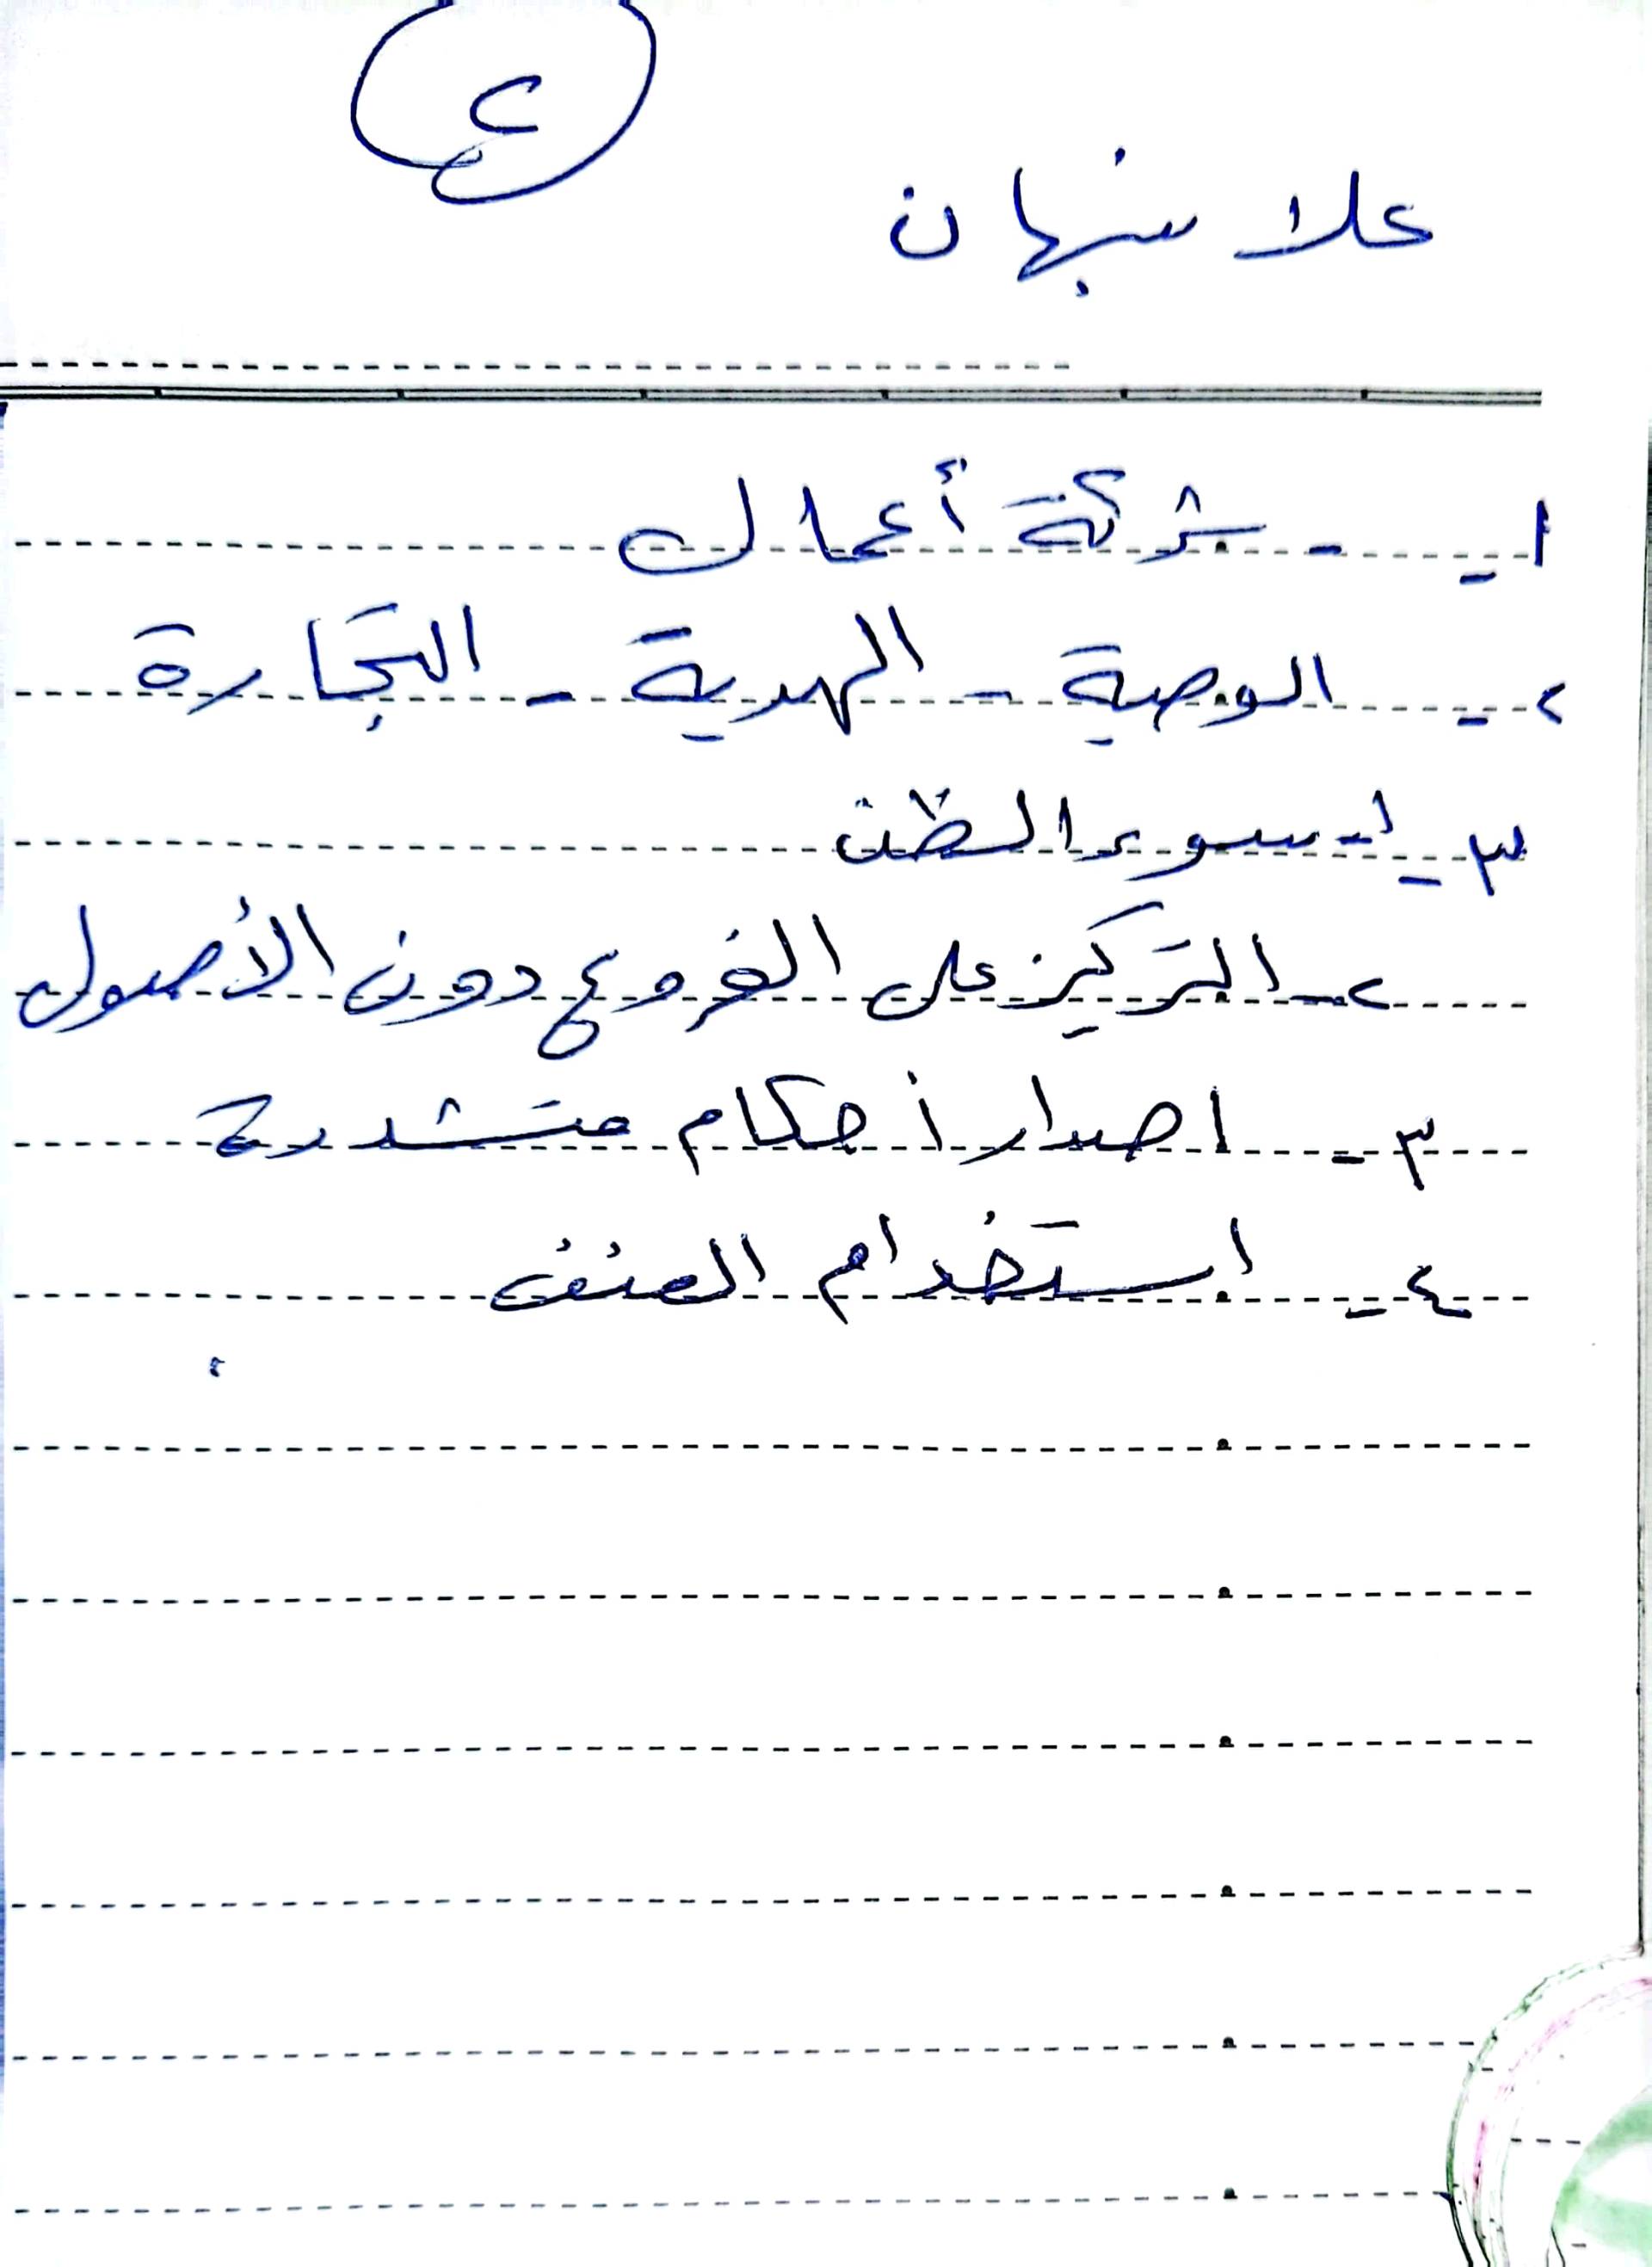 ٤
علا سنهان
١ - شركة أعمال
٢ - الوصية - الهدية - التجارة
٣ - ١- سوء الظن
٢- التركيز على الفروع دون الأصول
٣- اصدار أحكام متشددة
٤- استخدام العنف